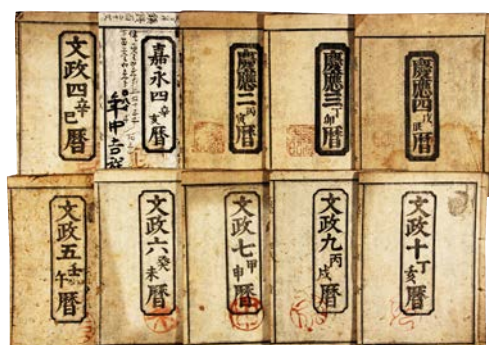 文政四辛巳暦
嘉永四辛亥暦
慶應二丙寅暦
慶應三丁卯暦
慶應四戊辰暦
文政五壬午暦
文政六癸未暦
文政七甲申暦
文政九丙戌暦
文政十丁亥暦